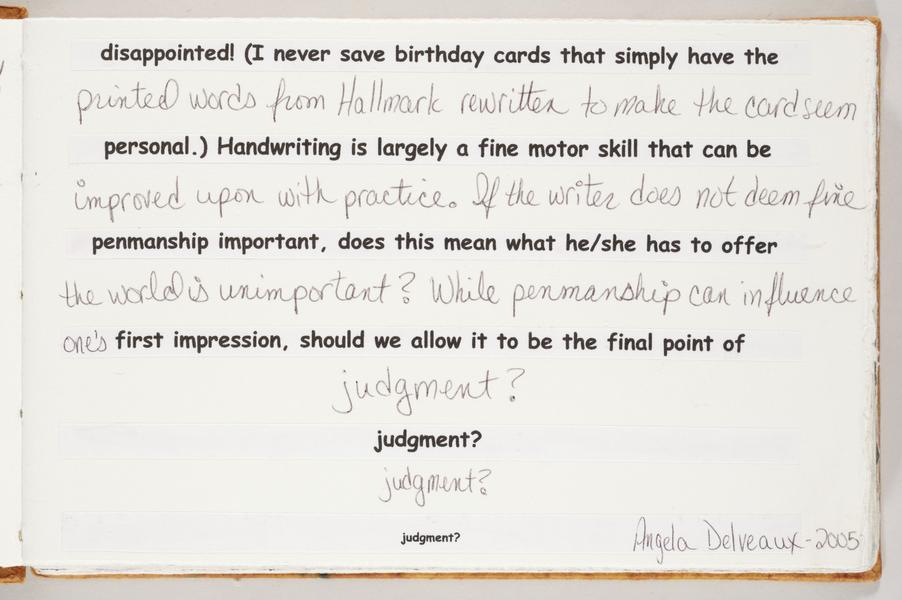 disappointed! (I never save birthday cards that simply have the
printed words from Hallmark rewritten to make the card seem
personal.) Handwriting is largely a fine motor skill that can be
improved upon with practice. If the writer does not deem fine
penmanship important, does this mean what he/she has to offer
the world is unimportant? While penmanship can influence
one's first impression, should we allow it to be the final point of
judgment?
judgment?
judgment?
judgment?
Angela Delveaux-2005